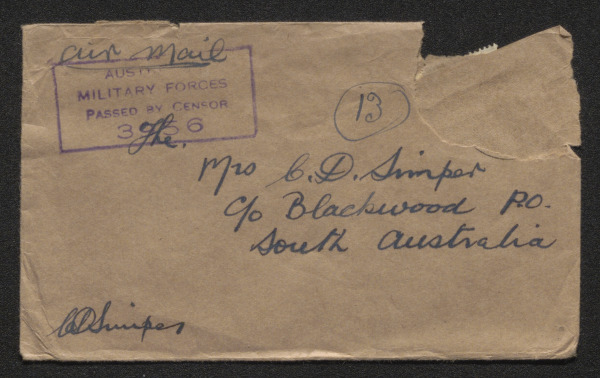 Air Mail
AUST
MILITARY FORCES
PASSED BY CENSOR
13
The.
Mrs C. D. Simper
C/o Blackwood P.O.
South Australia
CDSimper